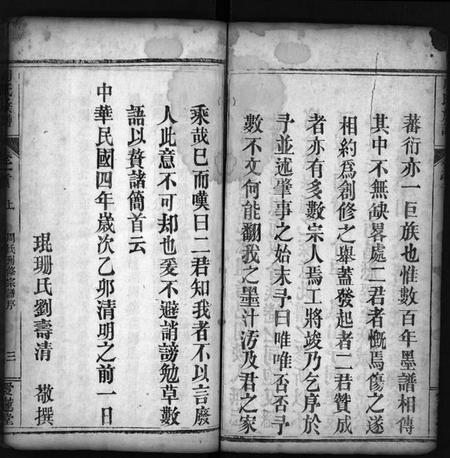 蕃衍亦一巨族也惟數百年墨譜相傳
其中不無缺畧處二君者慨焉傷之遂
相約爲創修之舉蓋發起者二君贊成
者亦有多數宗人焉工將竣乃乞序於
予並述肇事之始末予曰唯唯否否予
數不文何能翻我之墨汁污及君之家
乘哉已而嘆曰二君知我者不以言廢
人此意不可却也爰不避誚謗勉草數
語以贅諸簡首云
中華民國四年歲次乙卯清明之前一日
琨珊氏劉壽清 敬撰
上
三